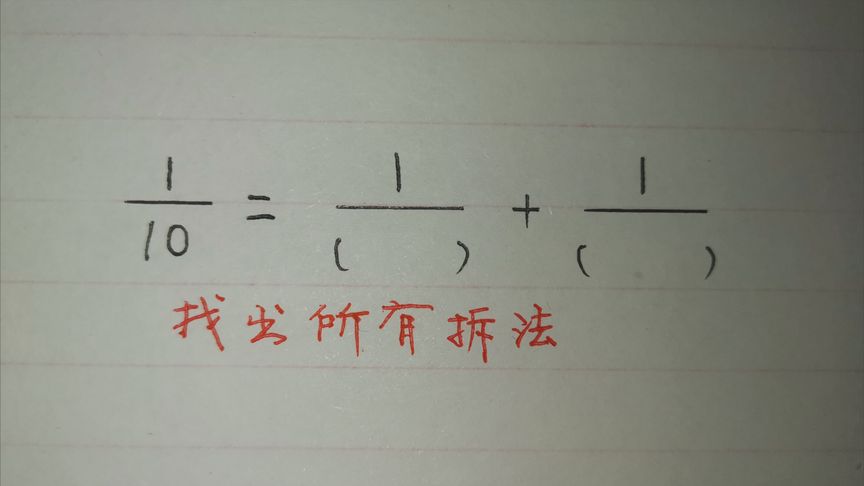 1/10 = 1/(  ) + 1/(  )
找出所有拆法